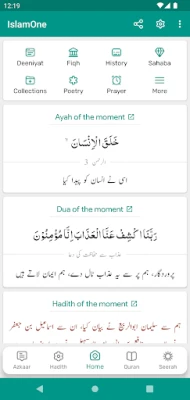 12:19
IslamOne
Deeniyat Fiqh History Sahaba
Collections Poetry Prayer More
Ayah of the moment
خَلَقَ الْاِنْسَانَ ۙ
الرحمن 3
اسی نے انسان کو پیدا کیا
Dua of the moment
رَبَّنَا اكْشِفْ عَنَّا الْعَذَابَ اِنَّا مُؤْمِنُوْنَ
عذاب سے حفاظت کی دعا
پروردگار، ہم پر سے یہ عذاب ٹال دے، ہم ایمان لاتے ہیں
Hadith of the moment
ہم سے سلیمان ابوالربیع نے بیان کیا، ان سے اسماعیل بن جعفر
Azkaar Hadith Home Quran Seerah